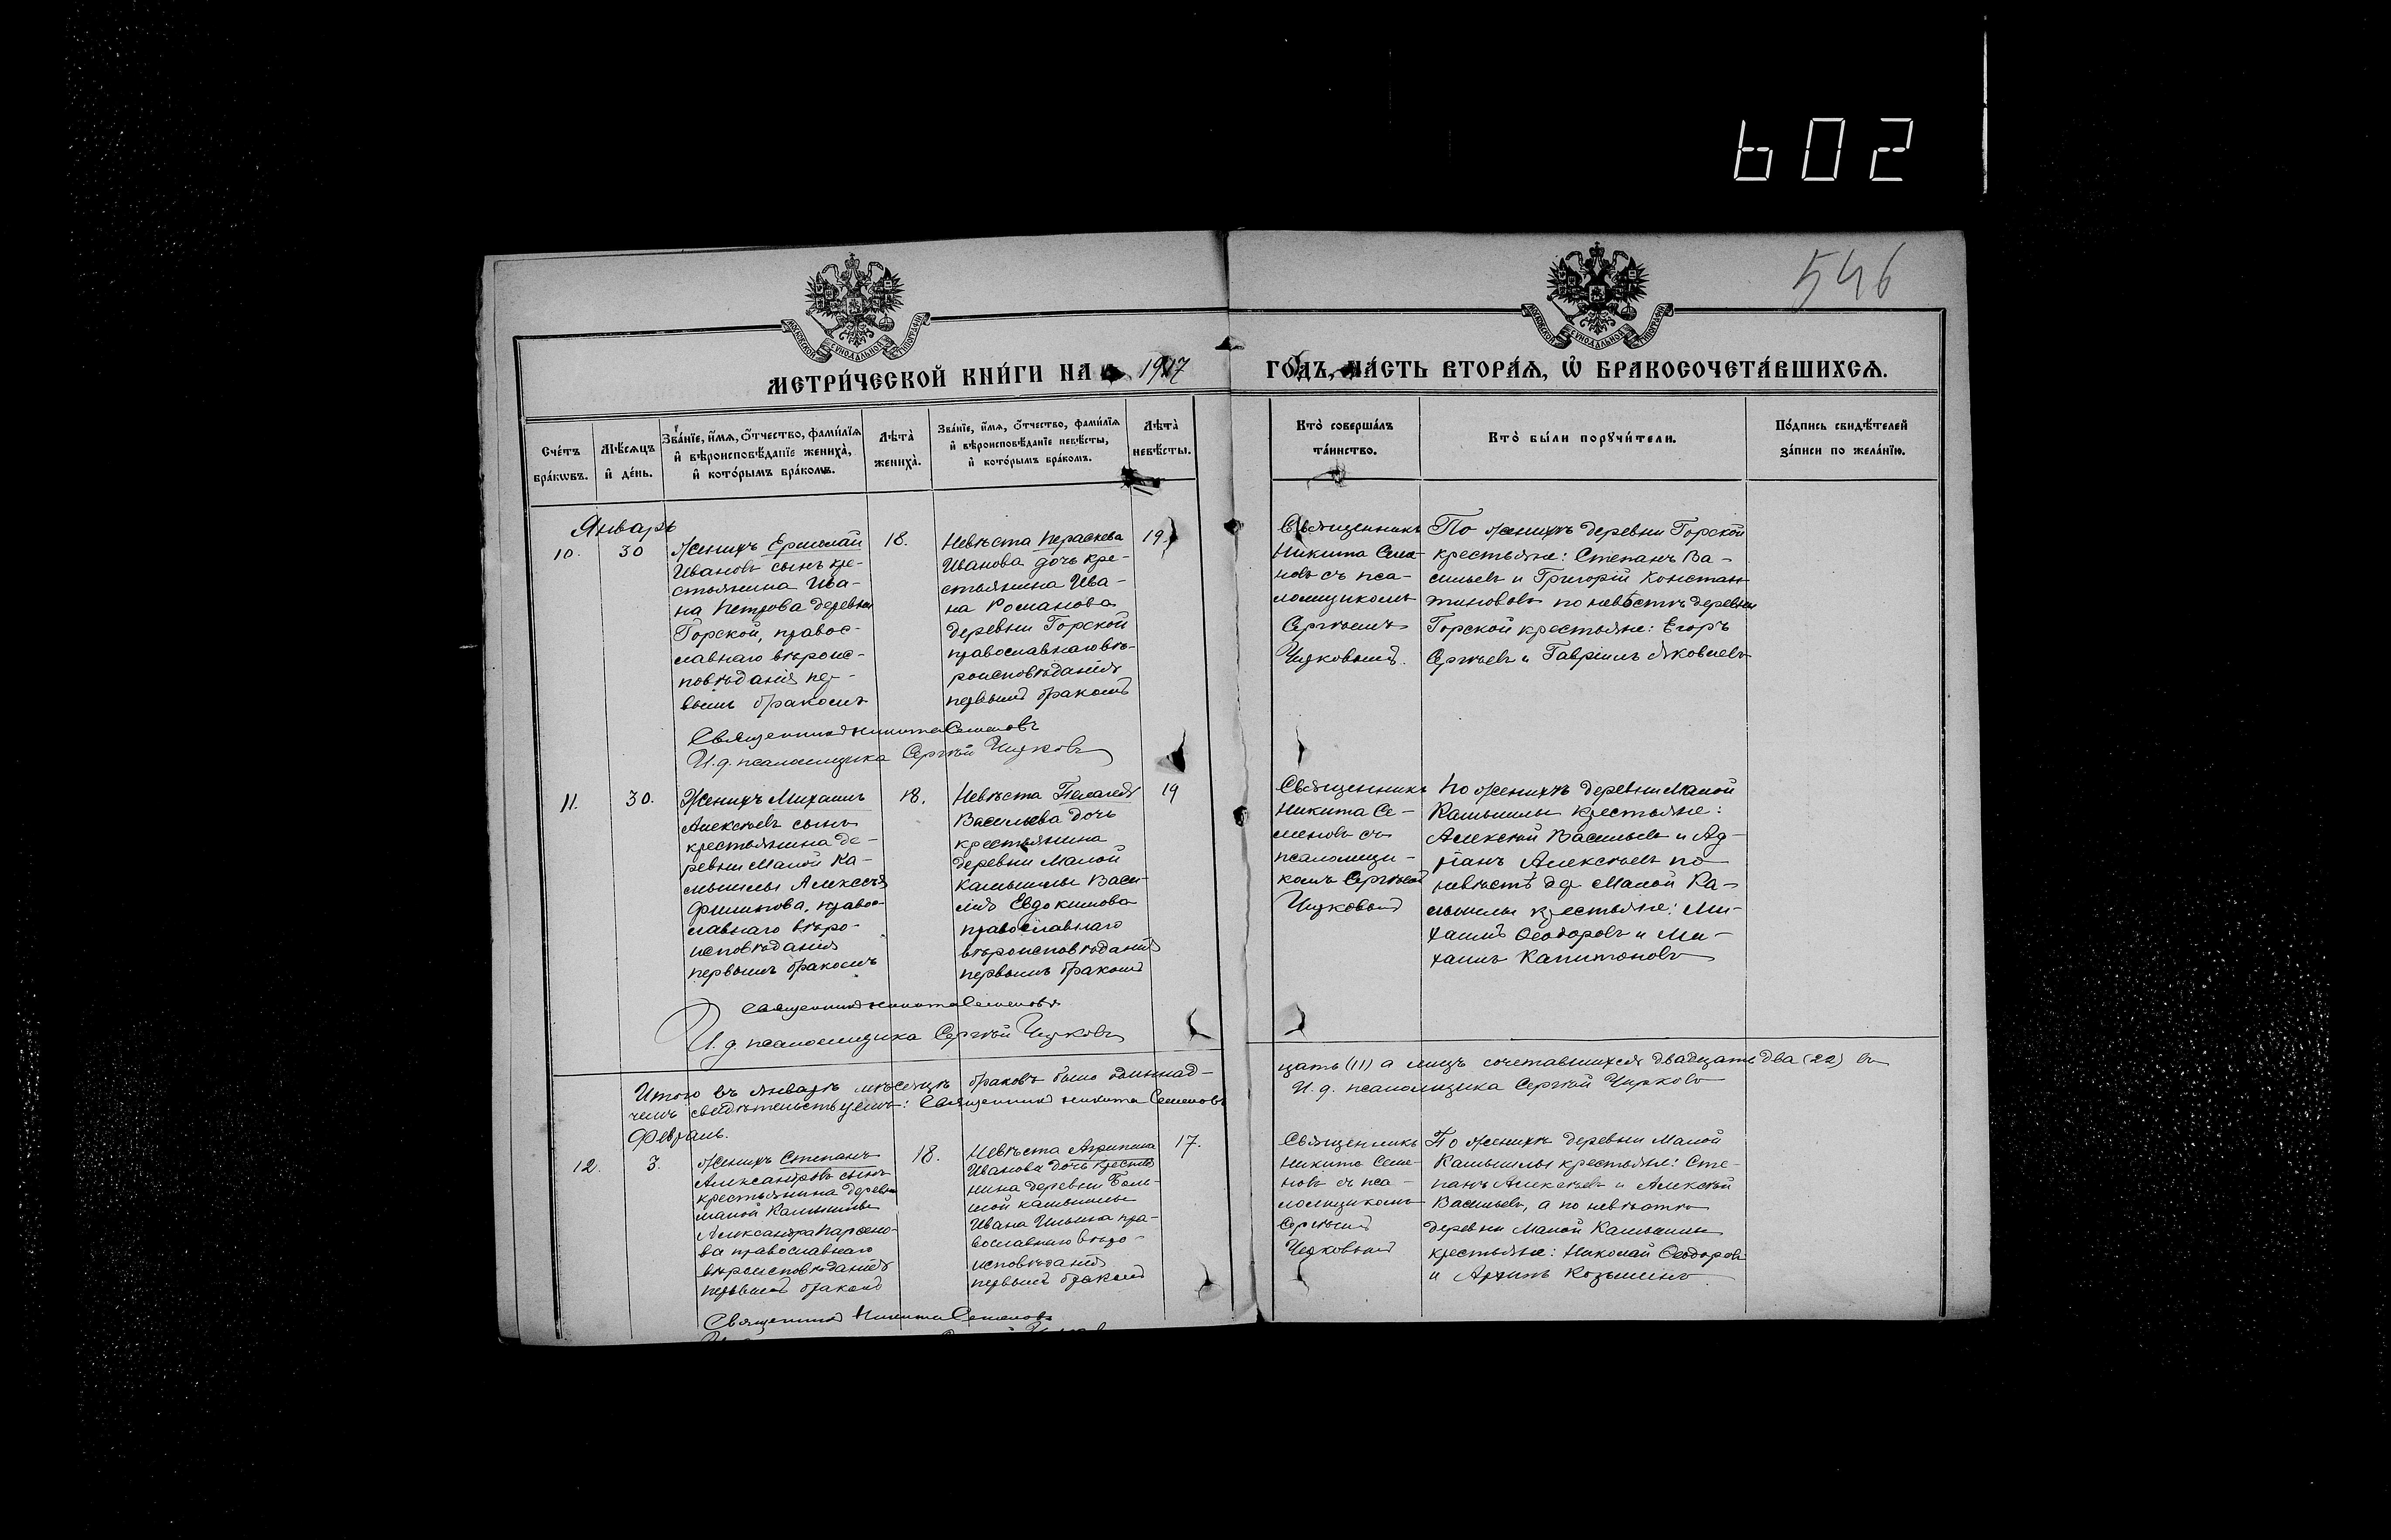 602
546
МОСКОВСКОЙ СУНОДАЛЬНОЙ ТИПОГРАФІИ
МОСКОВСКОЙ СУНОДАЛЬНОЙ ТИПОГРАФІИ
МЕТРИ́ЧЕСКОЙ КНИ́ГИ НА 1917
ГО́ДЪ, ЧА́СТЬ ВТОРА́Я, Ѡ҆ БРАКОСОЧЕТА́ВШИХСЯ.
Сче́тъ
бра́кѡвъ.
Мѣ́сяцъ
и҆ де́нь.
Зва́нїе, и҆́мя, ѻ҆́тчество, фами́лїя
и҆ вѣроисповѣ́данїе жениха̀,
и҆ кото́рымъ бра́комъ.
Лѣта̀
жениха̀.
Зва́нїе, и҆́мя, ѻ҆́тчество, фами́лїя
и҆ вѣроисповѣ́данїе невѣ́сты,
и҆ кото́рымъ бра́комъ.
Лѣта̀
невѣ́сты.
Кто̀ соверша́лъ
та́инство.
Кто̀ бы́ли порꙋчи́тели.
По́дпись свидѣ́телей
за́писи по жела́нїю.
Январь
10.
30
Женихъ Ермолай
Ивановъ сынъ кре-
стьянина Ива-
на Петрова деревни
Горской, правос-
лавнаго вѣроис-
повѣданія пер-
вымъ бракомъ
18.
Невѣста Параскева
Иванова дочь кре-
стьянина Ива-
на Романова
деревни Горской
православнаго вѣ-
роисповѣданія
первымъ бракомъ
19.
Священникъ
Никита Семе-
новъ съ пса-
ломщикомъ
Сергѣемъ
Чирковымъ.
По женихѣ деревни Горской
крестьяне: Степанъ Ва-
сильевъ и Григорій Констан
тиновъ по невѣстѣ деревни
Горской крестьяне: Егоръ
Сергѣевъ и Гавріилъ Яковлевъ
Священникъ Никита Семеновъ
И. д. псаломщика Сергѣй Чирковъ
11.
30.
Женихъ Михаилъ
Алексѣевъ сынъ
крестьянина де-
ревни Малой Ка-
мышлы Алексѣя
Филипова, правос-
лавнаго вѣро-
исповѣданія
первымъ бракомъ
18.
Невѣста Пелагея
Васильева дочь
крестьянина
деревни Малой
Камышлы Васи-
лія Евдокимова
православнаго
вѣроисповѣданія
первымъ бракомъ
19
Священникъ
Никита Се-
меновъ съ
псаломщи-
комъ Сергѣемъ
Чирковымъ
По женихѣ деревни Малой
Камышлы крестьяне:
Алексѣй Васильевъ и Ад-
ріанъ Алексѣевъ по
невѣстѣ дер Малой Ка-
мышлы крестьяне: Ми-
хаилъ Ѳеодоровъ и Ми-
хаилъ Капитоновъ
Священникъ Никита Семеновъ
И. д. псаломщика Сергѣй Чирковъ
Итого въ Январѣ мѣсяцѣ браковъ было одиннад-
цать (11) а лицъ сочетавшихся двадцать два (22) въ
чемъ свидѣтельствуемъ: Священникъ Никита Семеновъ
И. д. псаломщика Сергѣй Чирковъ
Февраль.
12.
3.
Женихъ Степанъ
Александровъ сынъ
крестьянина деревни
Малой Камышлы
Александра Парѳено-
ва православнаго
вѣроисповѣданія
первымъ бракомъ
18.
Невѣста Агрипина
Иванова дочь крестья
нина деревни Боль-
шой Камышлы
Ивана Ильина пра-
вославнаго вѣро-
исповѣданія
первымъ бракомъ
17.
Священникъ
Никита Семе-
новъ съ пса-
ломщикомъ
Сергѣемъ
Чирковымъ
По женихѣ деревни Малой
Камышлы крестьяне: Сте-
панъ Алексѣевъ и Алексѣй
Васильевъ, а по невѣстѣ
деревни Малой Камышлы
крестьяне: Николай Ѳеодоровъ
и Архипъ Козьминъ
Священникъ Никита Семеновъ